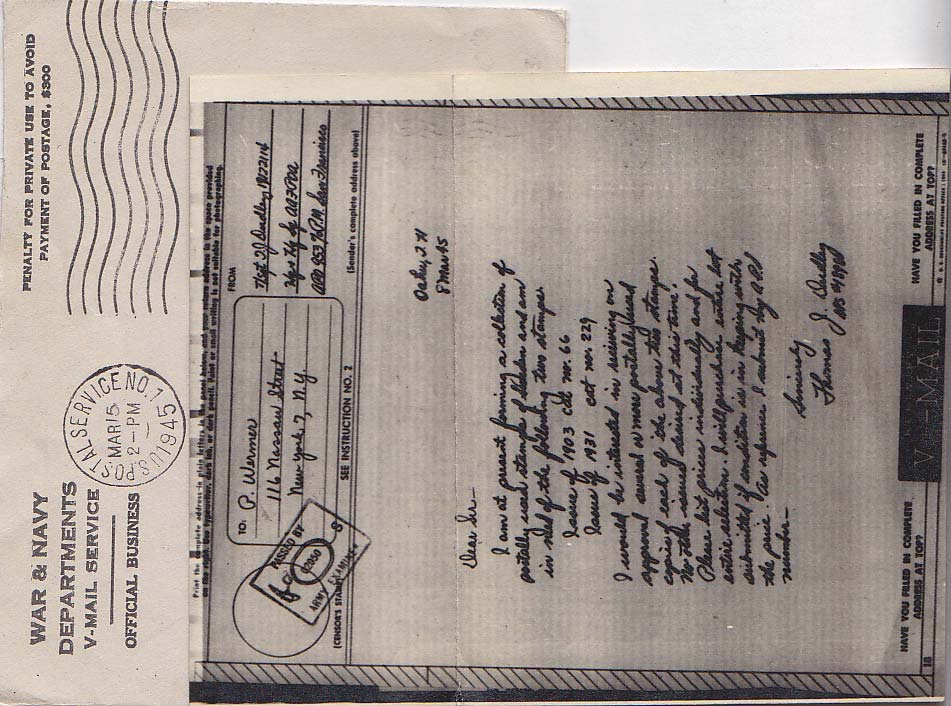 WAR & NAVY
DEPARTMENTS
V-MAIL SERVICE
OFFICIAL BUSINESS
PENALTY FOR PRIVATE USE TO AVOID
PAYMENT OF POSTAGE, $300
U.S. POSTAL SERVICE NO. 1
MAR 15
2-PM
1945
Print the complete address in plain letters in the panel below, and your return address in the space provided
on the right. Use typewriter, dark ink, or dark pencil. Faint or small writing is not suitable for photographing.
TO:
P. Warner
116 Nassau Street
New York 7, N.Y
FROM
T/Sgt T.J. Dudley
APO 953 % P.M. San Francisco
(Sender's complete address above)
PASSED BY
ARMY EXAMINER
(CENSOR'S STAMP)
SEE INSTRUCTION NO. 2
Oahu, T.H
8 Mar 45
Dear Sir-
I am at present forming a collection of
postally used stamps of Sweden and am
in need of the following two stamps.
Issue of 1903 cat no. 66
Issue of 1931 cat no. 229
I would be interested in receiving on
approval several or more postally used
copies of each of the above two stamps.
No other issues desired at this time.
Please list prices individually and for
entire selection. I will purchase entire lot
submitted if condition is in keeping with
the price. As reference I submit my A.P.S
number-
Sincerely
Thomas J. Dudley
HAVE YOU FILLED IN COMPLETE
ADDRESS AT TOP?
V-MAIL
HAVE YOU FILLED IN COMPLETE
ADDRESS AT TOP?
18